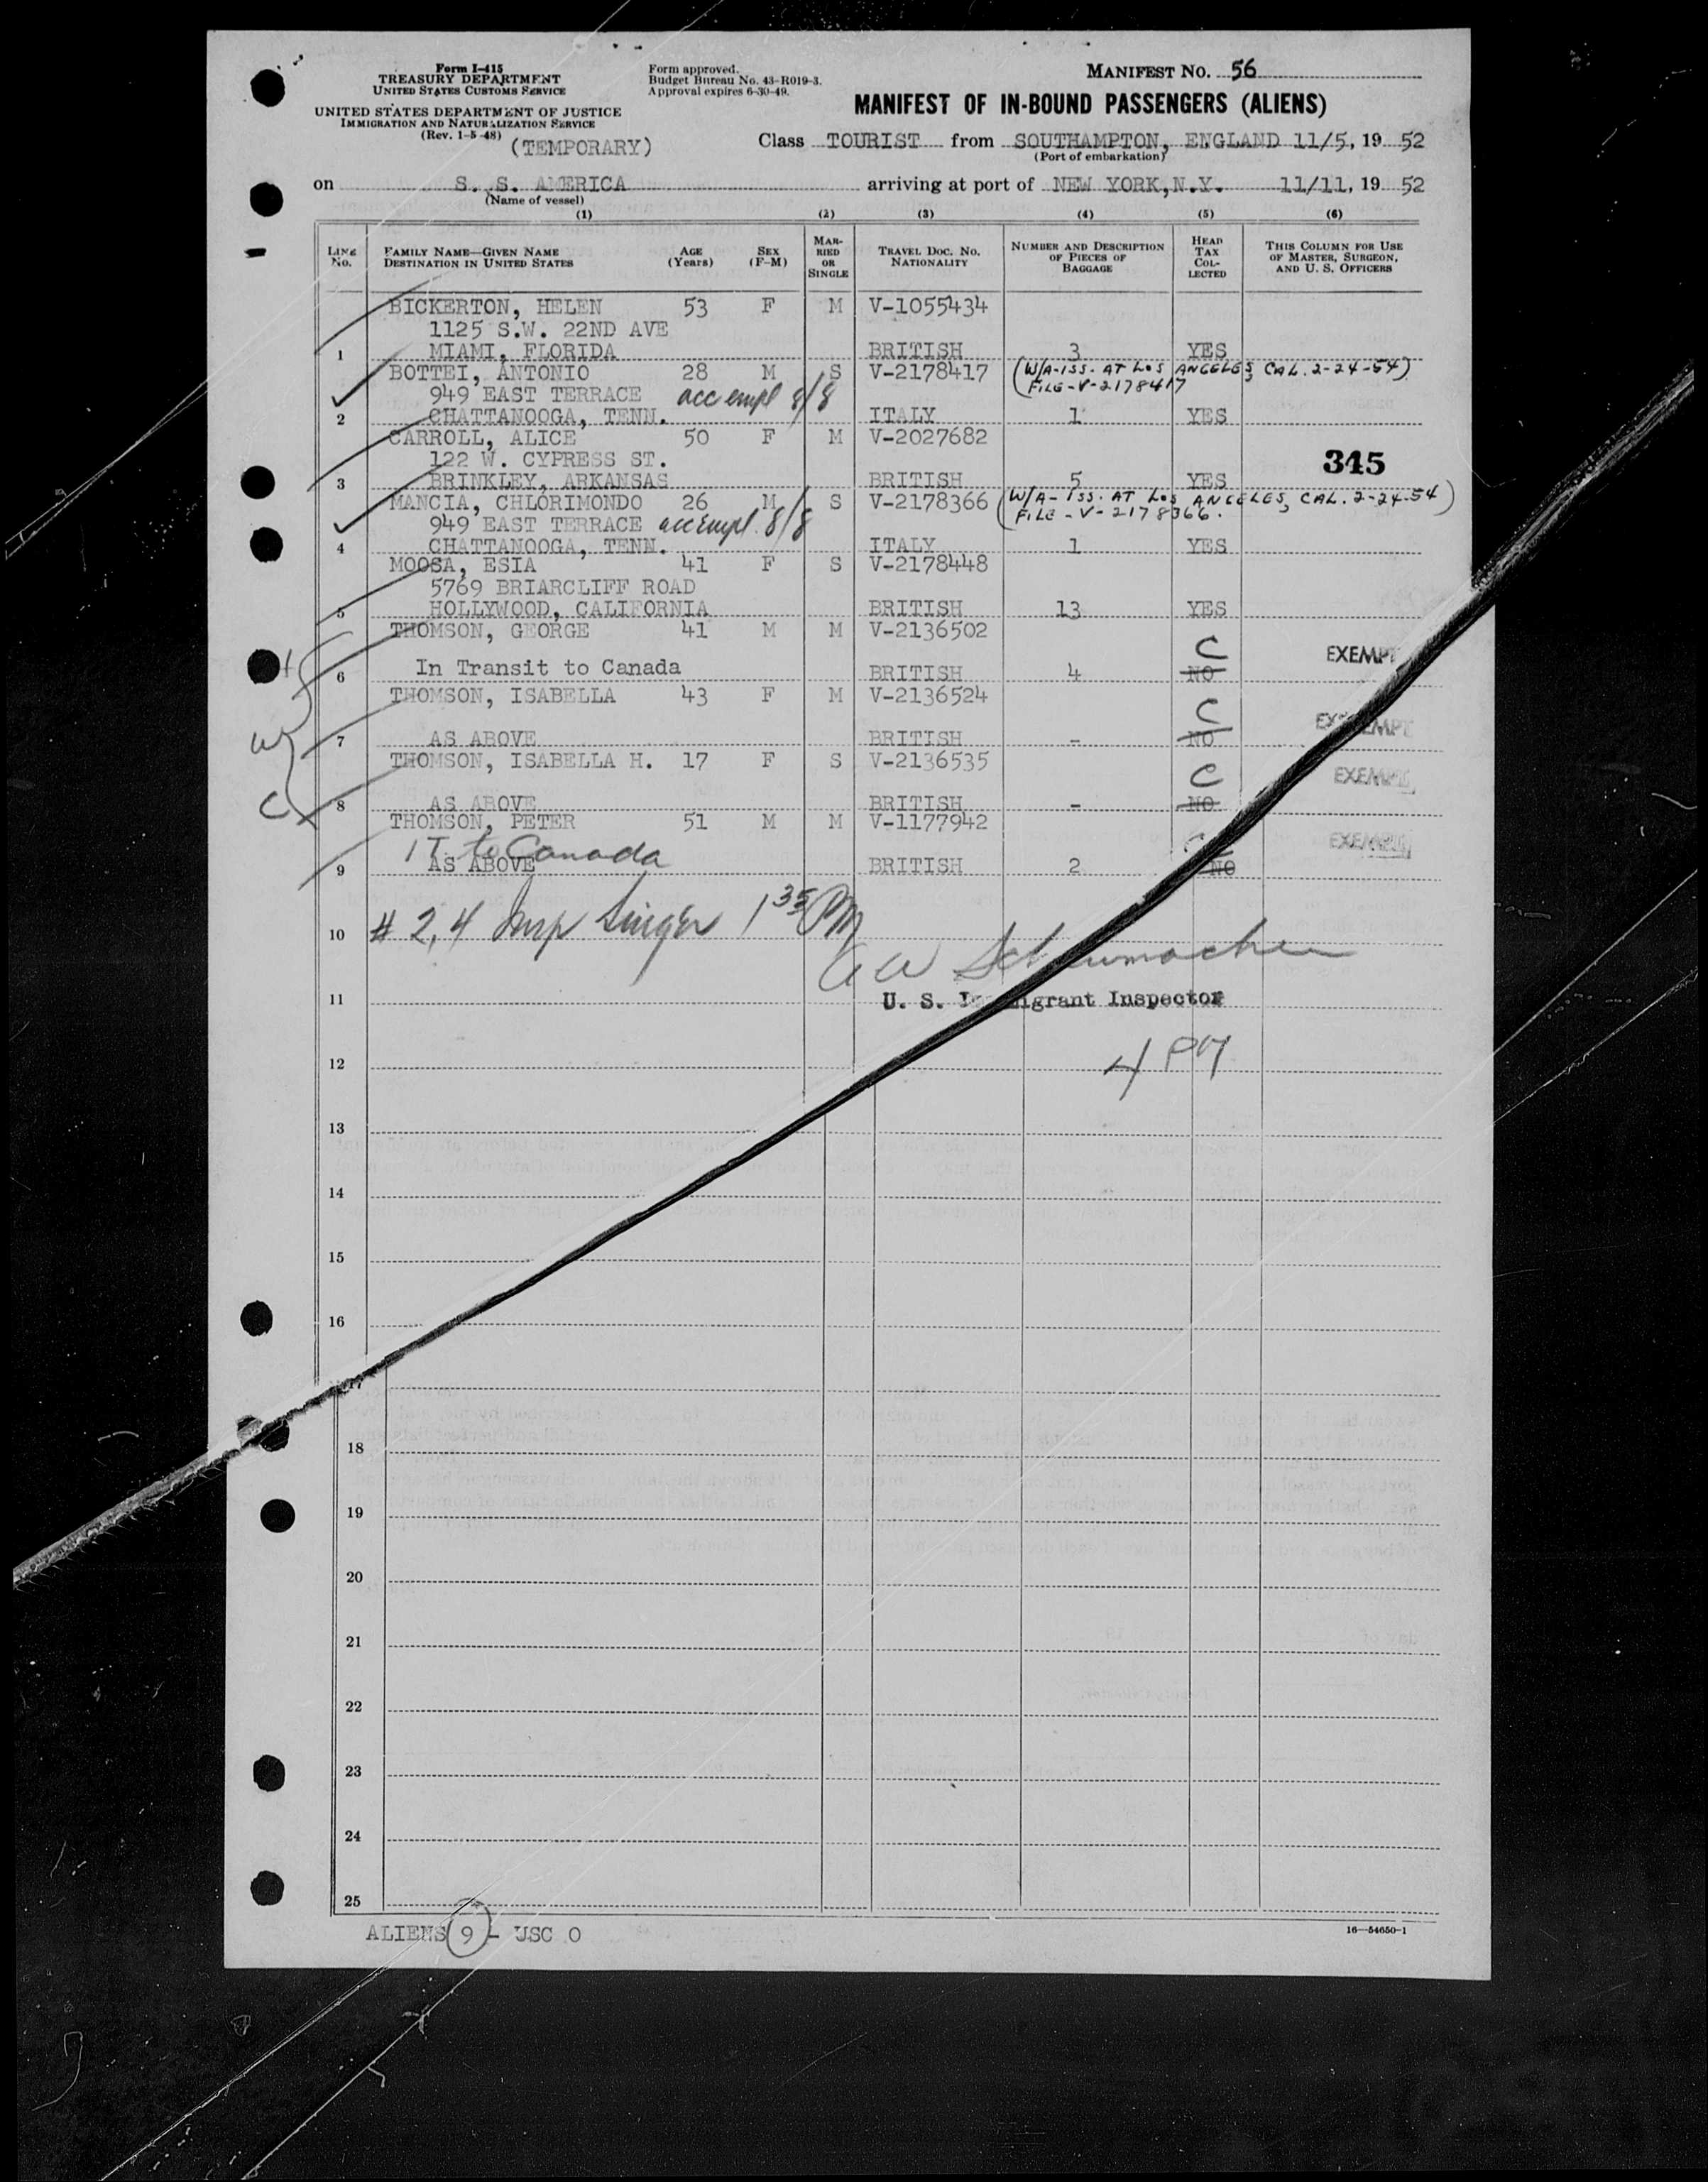 Form I-415
TREASURY DEPARTMENT
UNITED STATES CUSTOMS SERVICE
UNITED STATES DEPARTMENT OF JUSTICE
IMMIGRATION AND NATURALIZATION SERVICE
(Rev. 1-5-48)
(TEMPORARY)
Form approved.
Budget Bureau No. 43-R019-3.
Approval expires 6-30-49.
MANIFEST NO. 56
MANIFEST OF IN-BOUND PASSENGERS (ALIENS)
Class TOURIST from SOUTHAMPTON, ENGLAND 11/5, 19 52
(Port of embarkation)
on S. S. AMERICA arriving at port of NEW YORK, N.Y. 11/11, 19 52
(Name of vessel)
(1) (2) (3) (4) (5) (6)
LINE No. FAMILY NAME—GIVEN NAME DESTINATION IN UNITED STATES AGE (Years) SEX (F-M) MARRIED OR SINGLE TRAVEL DOC. NO. NATIONALITY NUMBER AND DESCRIPTION OF PIECES OF BAGGAGE HEAD TAX COLLECTED THIS COLUMN FOR USE OF MASTER, SURGEON, AND U. S. OFFICERS
BICKERTON, HELEN 53 F M V-1055434
1125 S.W. 22ND AVE
1 MIAMI, FLORIDA BRITISH 3 YES
BOTTEI, ANTONIO 28 M S V-2178417 (W/A-ISS. AT LOS ANGELES, CAL. 2-24-54)
949 EAST TERRACE acc empl 8/8 FILE-V-2178417
2 CHATTANOOGA, TENN. ITALY 1 YES
CARROLL, ALICE 50 F M V-2027682
122 W. CYPRESS ST. 345
3 BRINKLEY, ARKANSAS BRITISH 5 YES
MANCIA, CHLORIMONDO 26 M S V-2178366 (W/A-ISS. AT LOS ANGELES, CAL. 2-24-54)
949 EAST TERRACE acc empl. 8/8 FILE-V-2178366.
4 CHATTANOOGA, TENN. ITALY 1 YES
MOOSA, ESIA 41 F S V-2178448
5769 BRIARCLIFF ROAD
5 HOLLYWOOD, CALIFORNIA BRITISH 13 YES
THOMSON, GEORGE 41 M M V-2136502
C EXEMPT
6 In Transit to Canada BRITISH 4 NO
THOMSON, ISABELLA 43 F M V-2136524
C EXEMPT
7 AS ABOVE BRITISH - NO
THOMSON, ISABELLA H. 17 F S V-2136535
C EXEMPT
8 AS ABOVE BRITISH - NO
THOMSON, PETER 51 M M V-1177942
IT to Canada EXEMPT
9 AS ABOVE BRITISH 2 NO
10 # 2, 4 Insp Singer 1 35 PM
Schumacher
11 U. S. Immigrant Inspector
12 4 PM
13
14
15
16
17
18
19
20
21
22
23
24
25
ALIENS 9 - USC 0
16—54650-1